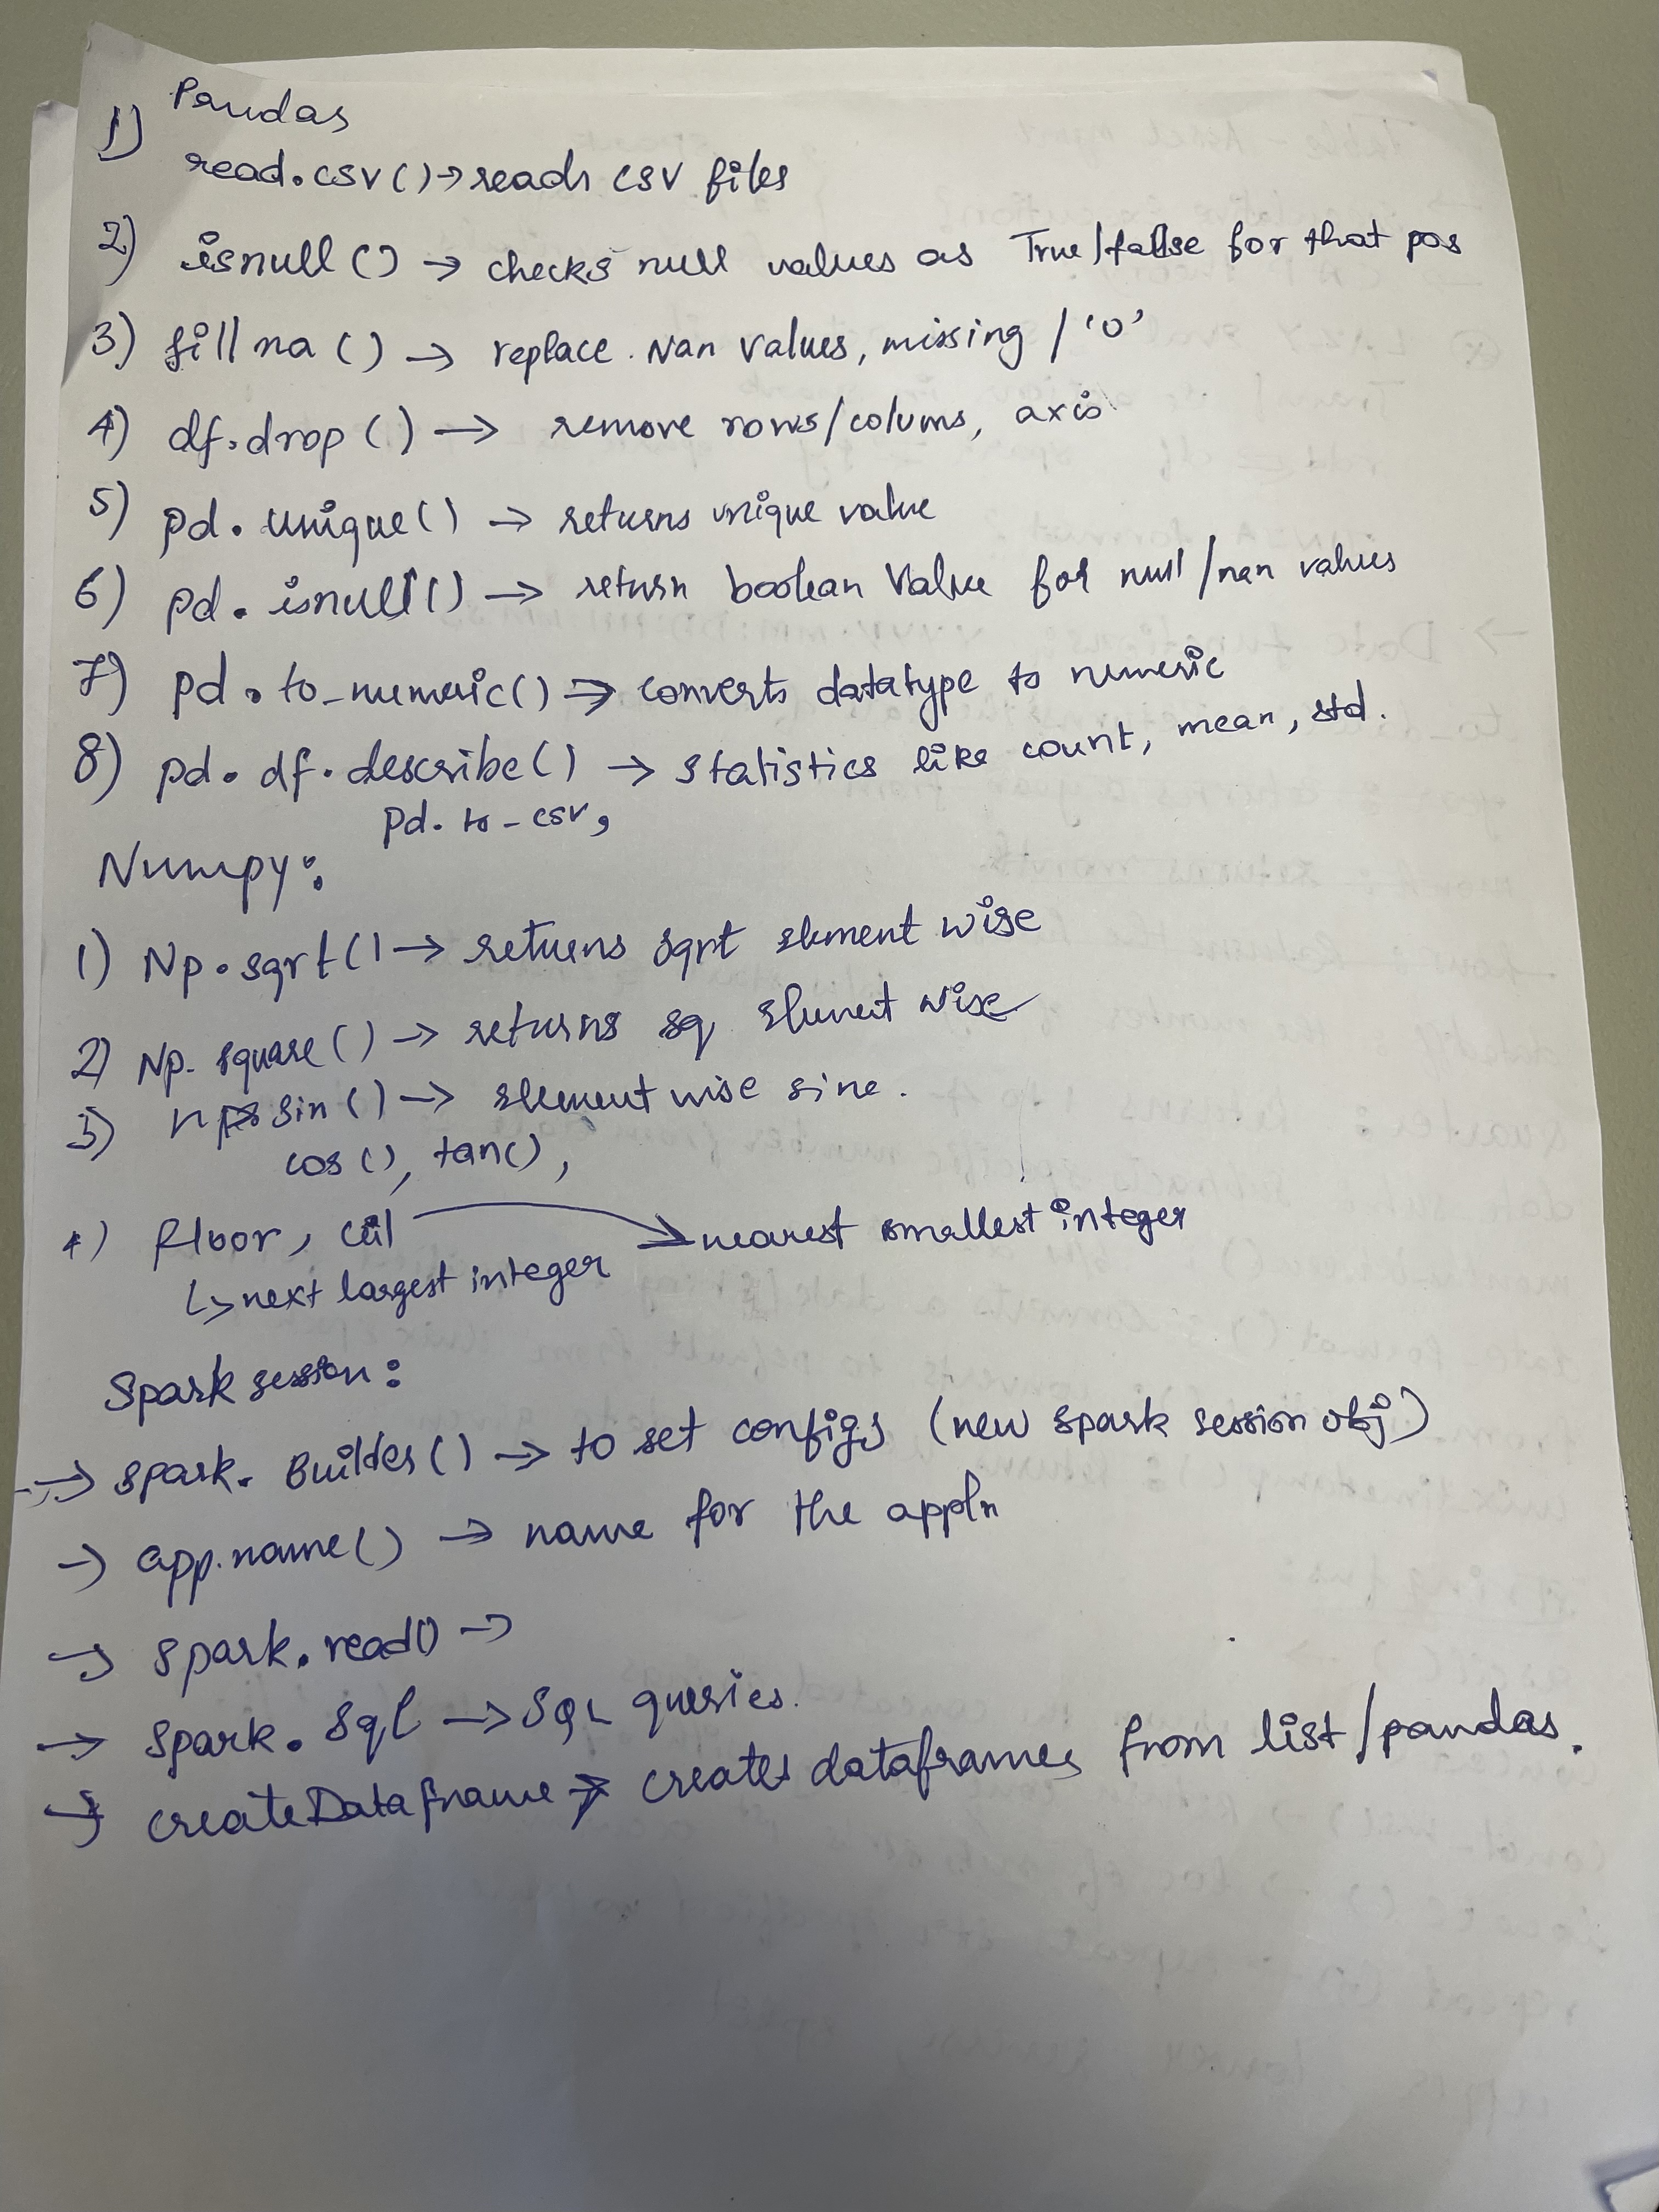 Pandas
1) read.csv() → reads csv files
2) isnull() → checks null values as True/false for that pos
3) fillna() → replace. Nan values, missing / '0'
4) df.drop() → remove rows/colums, axis
5) pd. unique() → returns unique value
6) pd. isnull() → return boolean value for null/nan values
7) pd. to_numeric() → converts datatype to numeric
8) pd. df. describe() → statistics like count, mean, std.
pd. to_csv,
Numpy:
1) Np.sqrt() → returns sqrt element wise
2) Np. square() → returns sq element wise
3) np sin() → element wise sine.
cos(), tan(),
4) floor, ceil → nearest smallest integer
↳ next largest integer
Spark session:
→ spark. Builder() → to set configs (new spark session obj)
→ app.name() → name for the appln
→ spark.read() →
→ spark. sql → SQL queries.
→ createDataframe → creates dataframes from list/pandas.